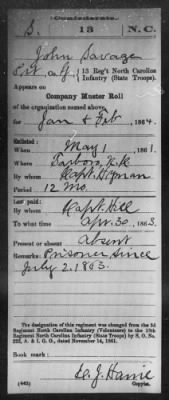 S. 13 N.C.
John Savage
Pvt Co. G, 13 Reg't North Carolina
Infantry (State Troops).
Appears on
Company Muster Roll
of the organization named above,
for Jan & Feb, 1864.
Enlisted:
When May 1, 1861.
Where Tarboro, N.C.
By whom Capt. Hyman
Period 12 Mo.
Last paid:
By whom Capt. Hill
To what time Apr. 30, 1863.
Present or absent Absent
Remarks: Prisoner since
July 2. 1863.
The designation of this regiment was changed from the 3d
Regiment North Carolina Infantry (Volunteers) to the 13th
Regiment North Carolina Infantry (State Troops) by S. O. No.
222, A. & I. G. O., dated November 14, 1861.
Book mark:
(642) Copyist.